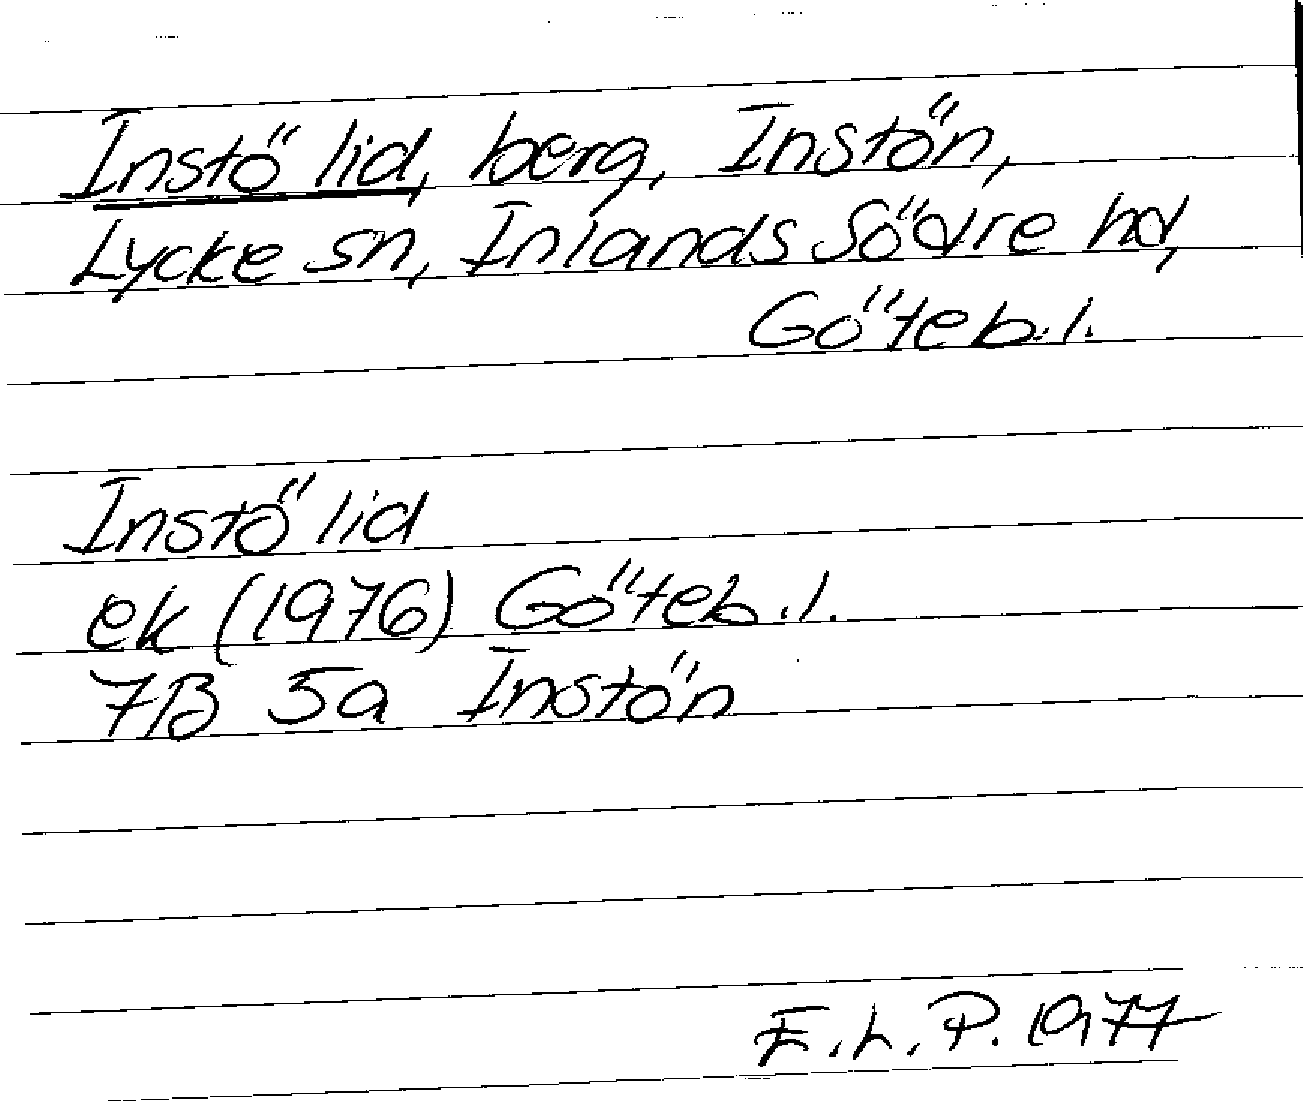 Instö lid, berg, Instön,
Lycke sn, Inlands Södre hd,
Göteb.l.
Instö lid
ek (1976) Göteb.l.
7B 5a Instön
E.L.P. 1977